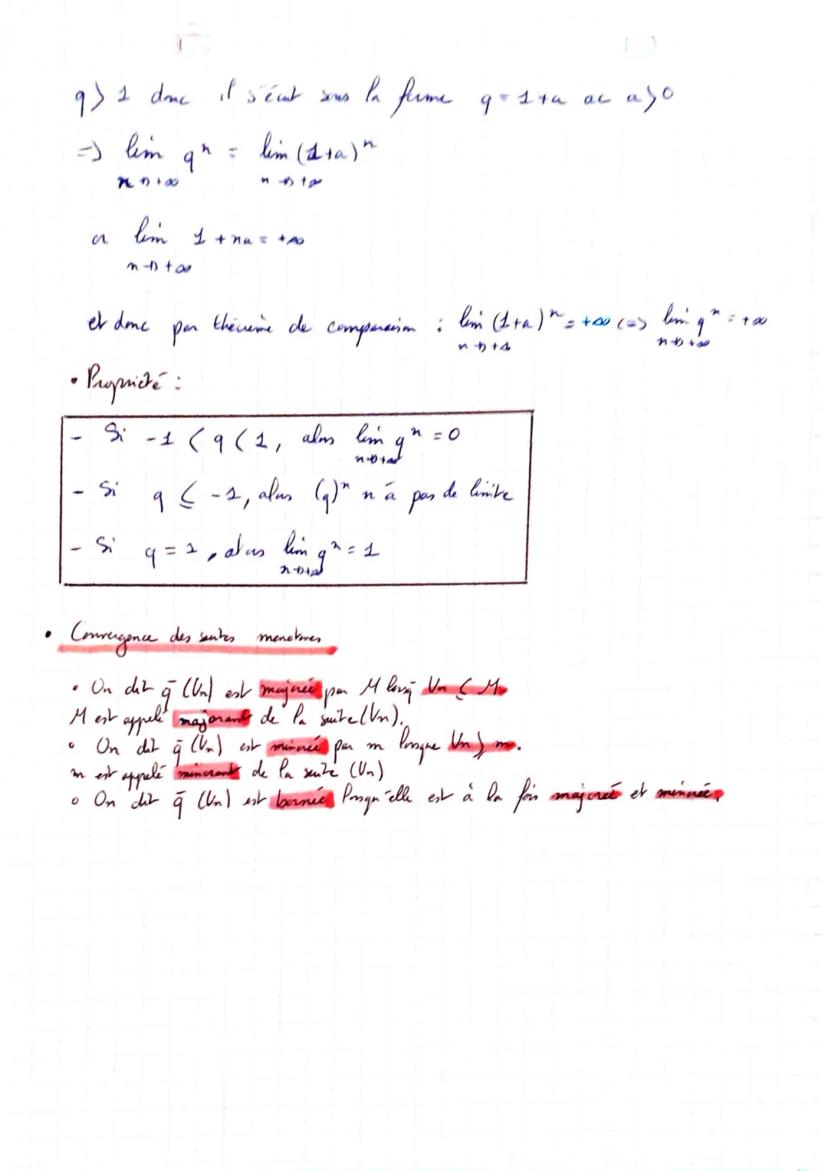 q > 1 donc il s'écrit sous la forme q = 1 + a ac a > 0
=> lim qⁿ = lim (1+a)ⁿ
n→+∞ n→+∞
or lim 1 + na = +∞
n→+∞
et donc par théorème de comparaison : lim (1+a)ⁿ = +∞ <=> lim qⁿ = +∞
n→+∞ n→+∞
• Propriété :
- Si -1 < q < 1, alors lim qⁿ = 0
n→+∞
- Si q ≤ -1, alors (q)ⁿ n'a pas de limite
- Si q = 1, alors lim qⁿ = 1
n→+∞
• Convergence des suites monotones
• On dit q̄ (Un) est majorée par M lorsq̄ Un ≤ M.
M est appelé majorant de la suite (Un).
• On dit q̄ (Un) est minorée par m lorsque Un ≥ m.
m est appelé minorant de la suite (Un)
• On dit q̄ (Un) est bornée lorsqu'elle est à la fois majorée et minorée.